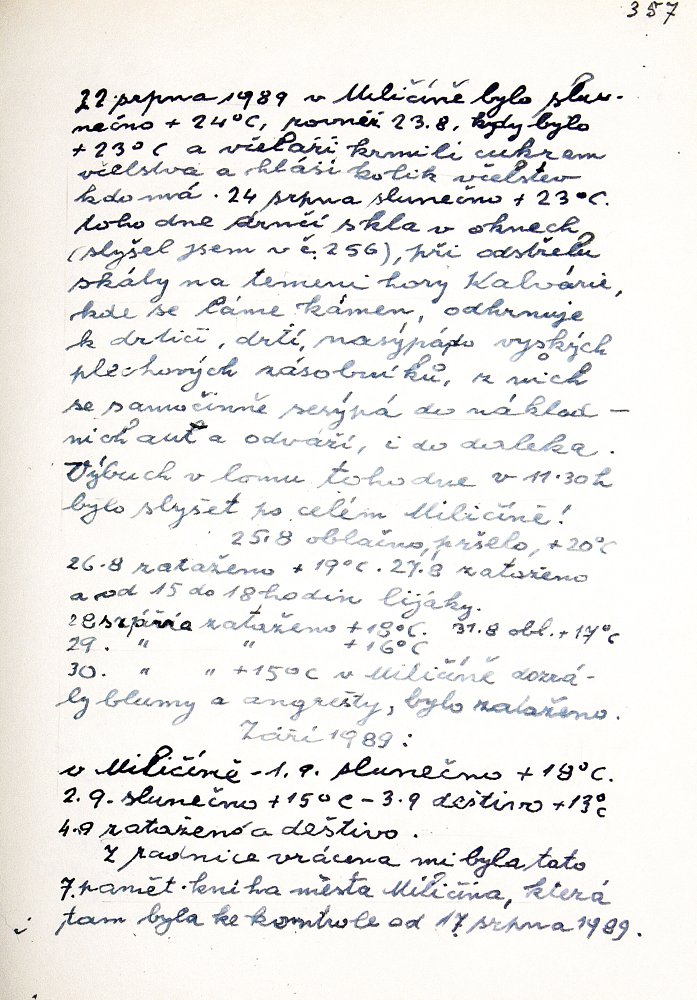 357
22. srpna 1989 v Miličíně bylo slun-
nečno + 24°C, rovněž 23.8. kdy bylo
+ 23°C a včelaři krmili cukrem
včelstva a hlásí kolik včelstev
kdo má. 24 srpna slunečno + 23°C.
toho dne drnčí skla v oknech
(slyšel jsem v č. 256), při odstřelu
skály na temeni hory Kalvárie,
kde se láme kámen, odhrnuje
k drtiči, drtí, nasýpá do vyských
plechových zásobníků, z nich
se samočinně sesýpá do náklad-
nich aut a odváží, i do daleka.
Výbuch v lomu toho dne v 11.30 h
bylo slyšet po celém Miličíně!
25.8 oblačno, pršelo, +20°C
26.8 zataženo + 19°C. 27.8 zataženo
a od 15 do 18 hodin lijáky.
28 zataženo +18°C. 31.8 obl. +17°C
29. " " +16°C
30. " " +15°C v Miličíně dozrá-
ly blumy a angrešty, bylo zataženo.
Září 1989:
v Miličíně - 1.9. slunečno + 18°C.
2.9. slunečno +15°C - 3.9 deštivo +13°C
4.9 zataženo a deštivo.
Z radnice vrácena mi byla tato
7. pamět. kniha města Miličína, která
tam byla ke kontrole od 17 srpna 1989.